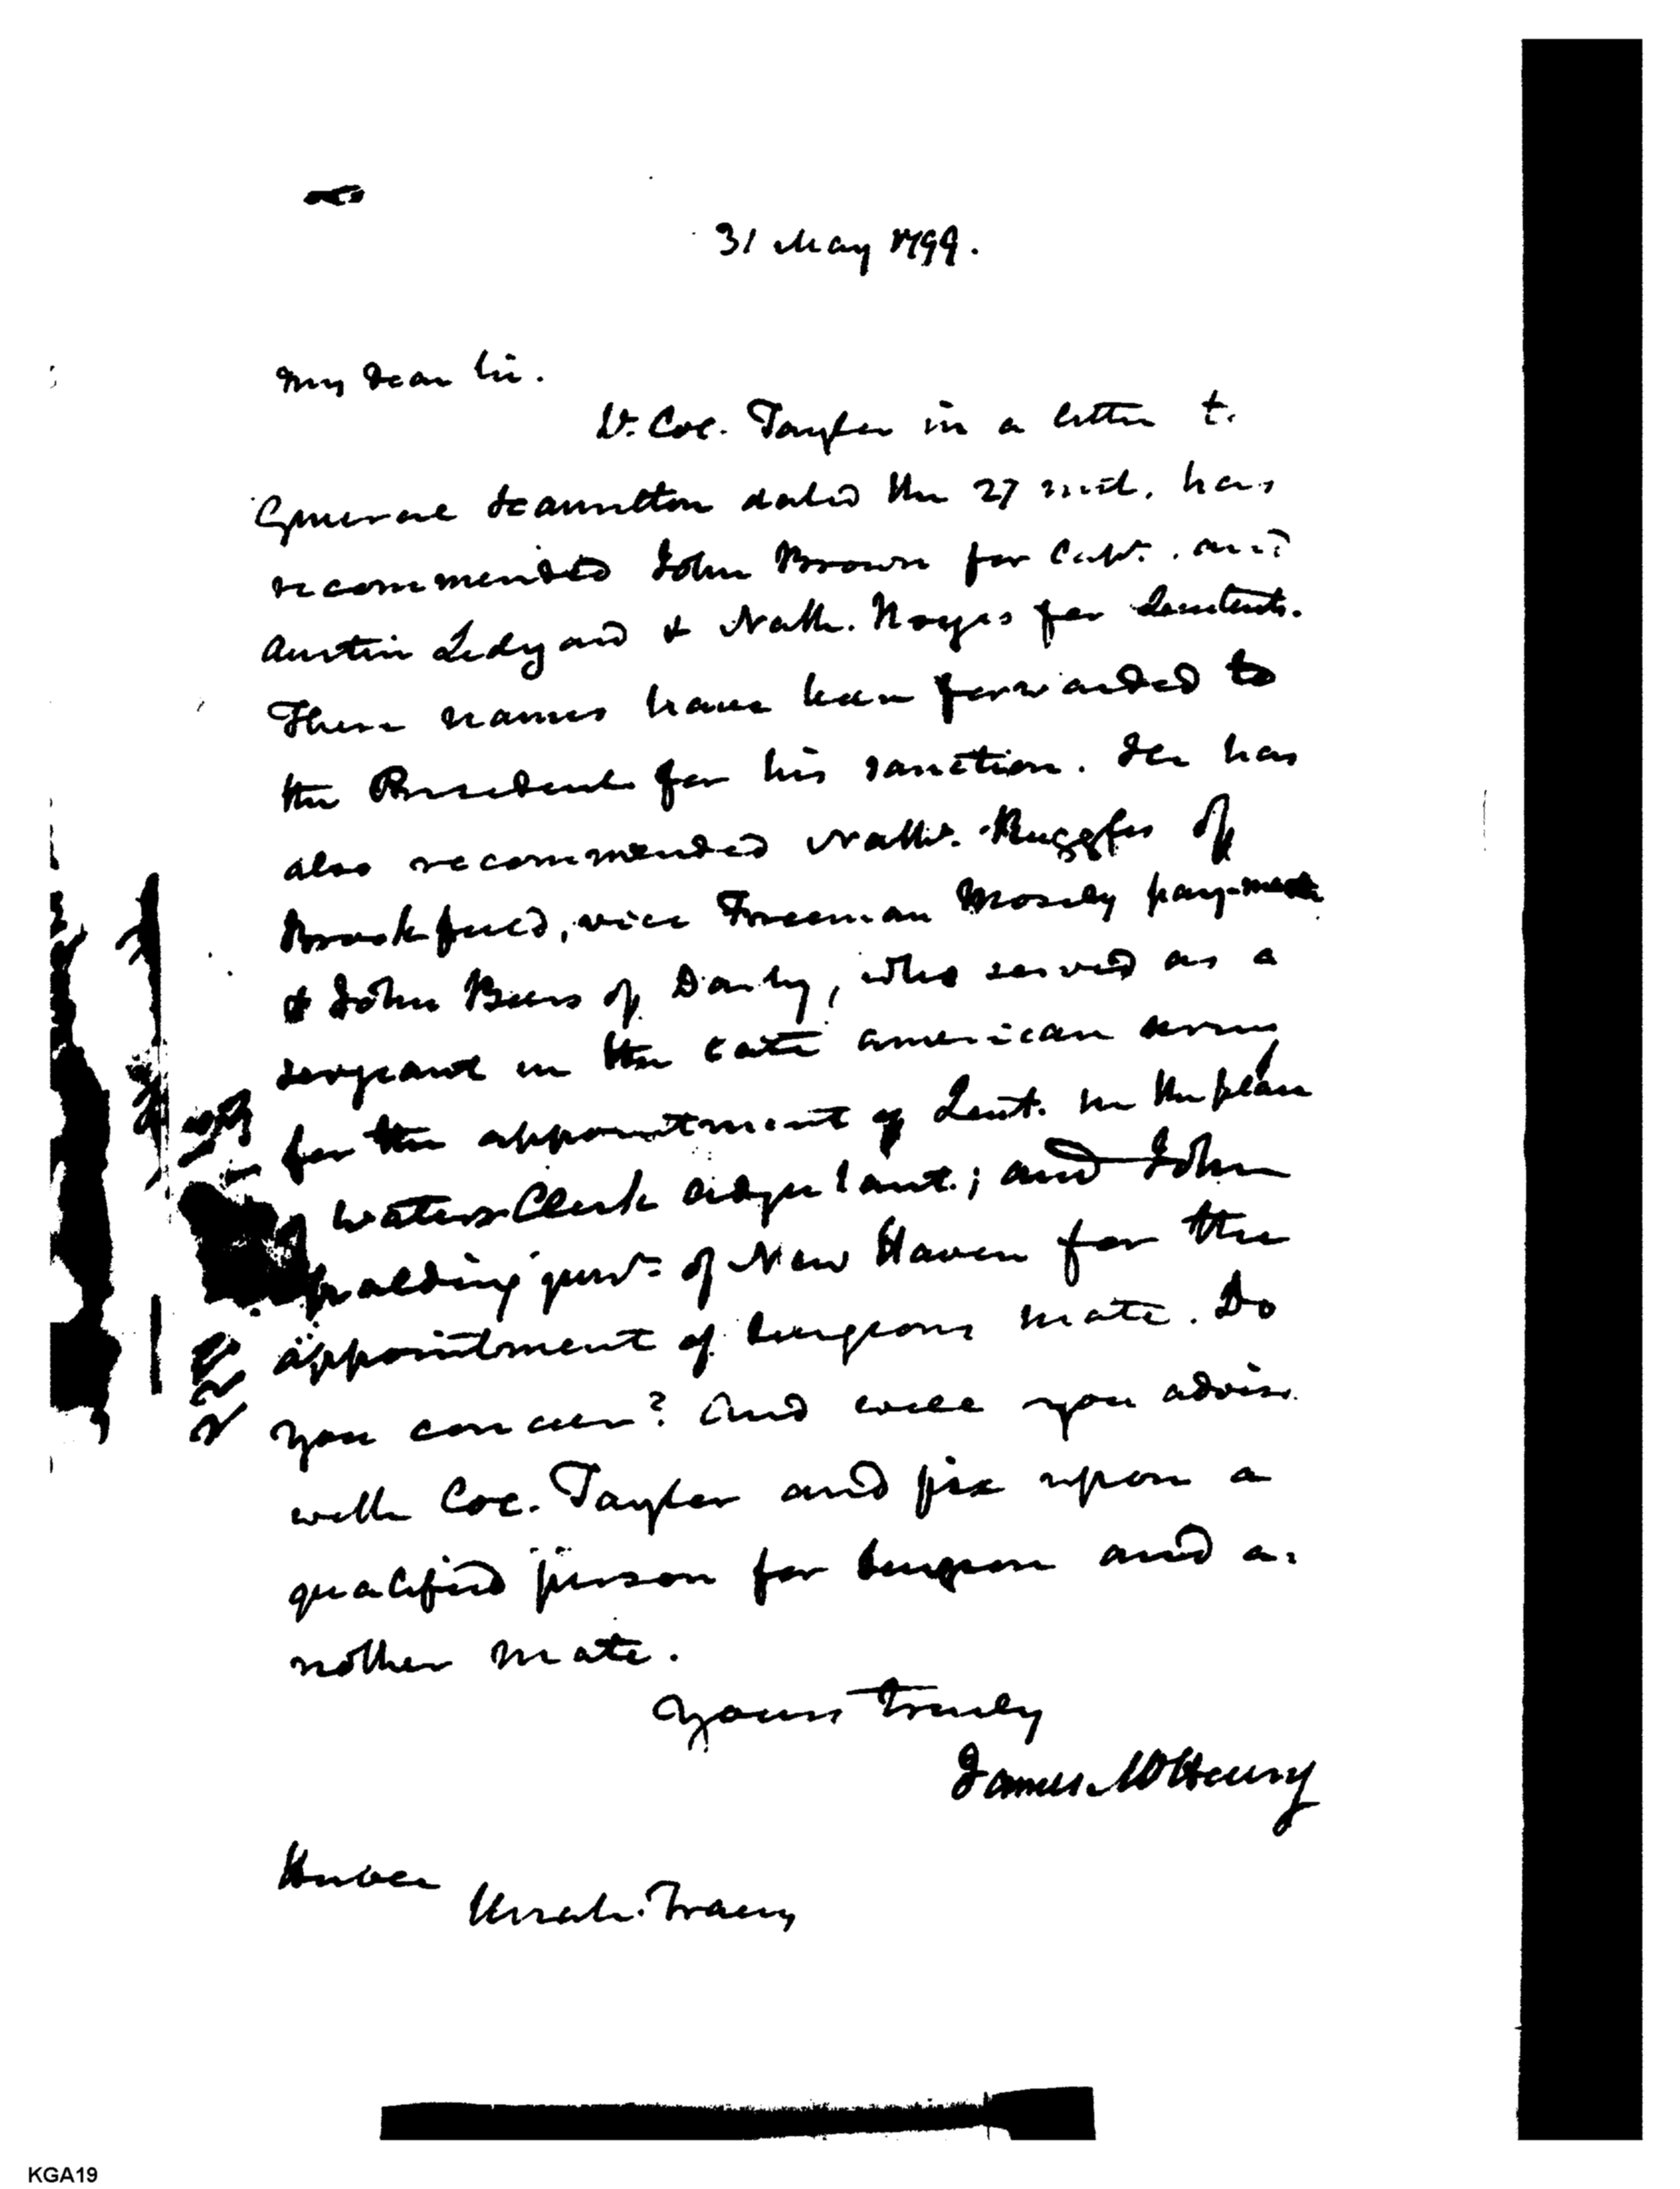 31 May 1799.
My dear Sir.
Lt. Col. Tayler in a letter to
General Hamilton dated the 27 inst. has
recommended John Brown for Capt. and
Austin Ledyard & Nath. Noyes for Lieutents.
These names have been forwarded to
the President for his sanction. He has
also recommended Nathl. Ruggles of
Brookfield, vice Freeman Mosely pay-mast
& John Beers of Danby, who served as a
sergeant in the late american army
for the appointment of Lieut. in the place
of Waters Clark adjutant; and John
Spalding junr. of New Haven for the
appointment of Surgeons mate. Do
you concur? And will you advise
with Col. Tayler and fix upon a
qualified person for Surgeon and a-
nother mate.
Yours truly
James McHenry
Uriah Tracy
KGA19